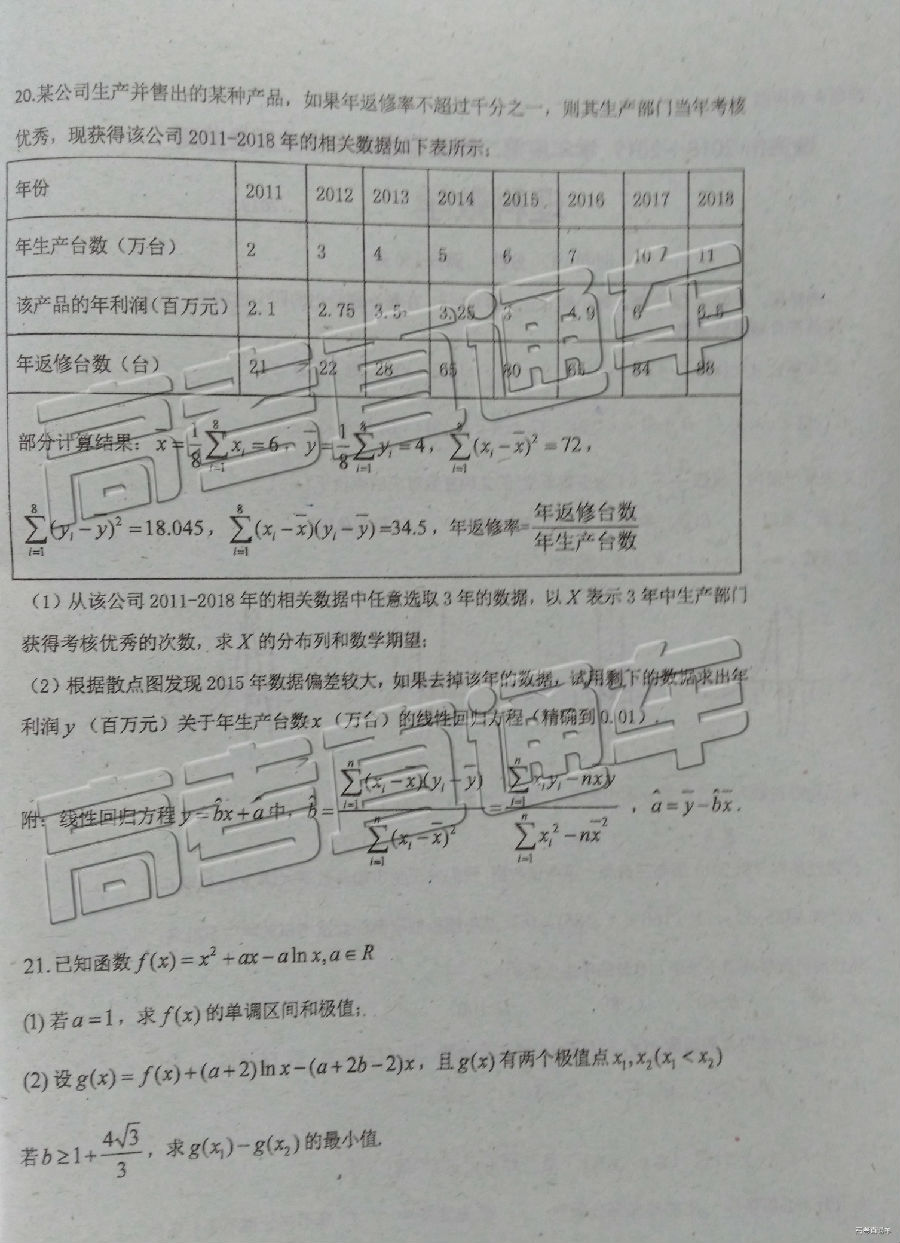 20.某公司生产并售出的某种产品，如果年返修率不超过千分之一，则其生产部门当年考核
优秀，现获得该公司 2011-2018 年的相关数据如下表所示：
年份 2011 2012 2013 2014 2015 2016 2017 2018
年生产台数（万台） 2 3 4 5 6 7 10 11
该产品的年利润（百万元） 2.1 2.75 3.5 3.25 3 4.9 6 6.5
年返修台数（台） 21 22 28 65 80 65 84 88
部分计算结果：x̄ = 1/8 ∑_{i=1}^{8} x_i = 6，ȳ = 1/8 ∑_{i=1}^{8} y_i = 4，∑_{i=1}^{8} (x_i − x̄)² = 72，
∑_{i=1}^{8} (y_i − ȳ)² = 18.045，∑_{i=1}^{8} (x_i − x̄)(y_i − ȳ) = 34.5，年返修率= 年返修台数/年生产台数
（1）从该公司 2011-2018 年的相关数据中任意选取 3 年的数据，以 X 表示 3 年中生产部门
获得考核优秀的次数，求 X 的分布列和数学期望；
（2）根据散点图发现 2015 年数据偏差较大，如果去掉该年的数据，试用剩下的数据求出年
利润 y （百万元）关于年生产台数 x （万台）的线性回归方程（精确到 0.01）.
附：线性回归方程 ŷ = b̂x + â 中，b̂ = ∑_{i=1}^{n} (x_i − x̄)(y_i − ȳ) / ∑_{i=1}^{n} (x_i − x̄)² = (∑_{i=1}^{n} x_i y_i − n x̄ ȳ) / (∑_{i=1}^{n} x_i² − n x̄²)，â = ȳ − b̂x̄.
21.已知函数 f(x) = x² + ax − a ln x, a ∈ R
(1) 若 a = 1，求 f(x) 的单调区间和极值；
(2) 设 g(x) = f(x) + (a+2) ln x − (a+2b−2)x，且 g(x) 有两个极值点 x₁, x₂ (x₁ < x₂)
若 b ≥ 1 + 4√3/3，求 g(x₁) − g(x₂) 的最小值.
高考直通车
高考直通车